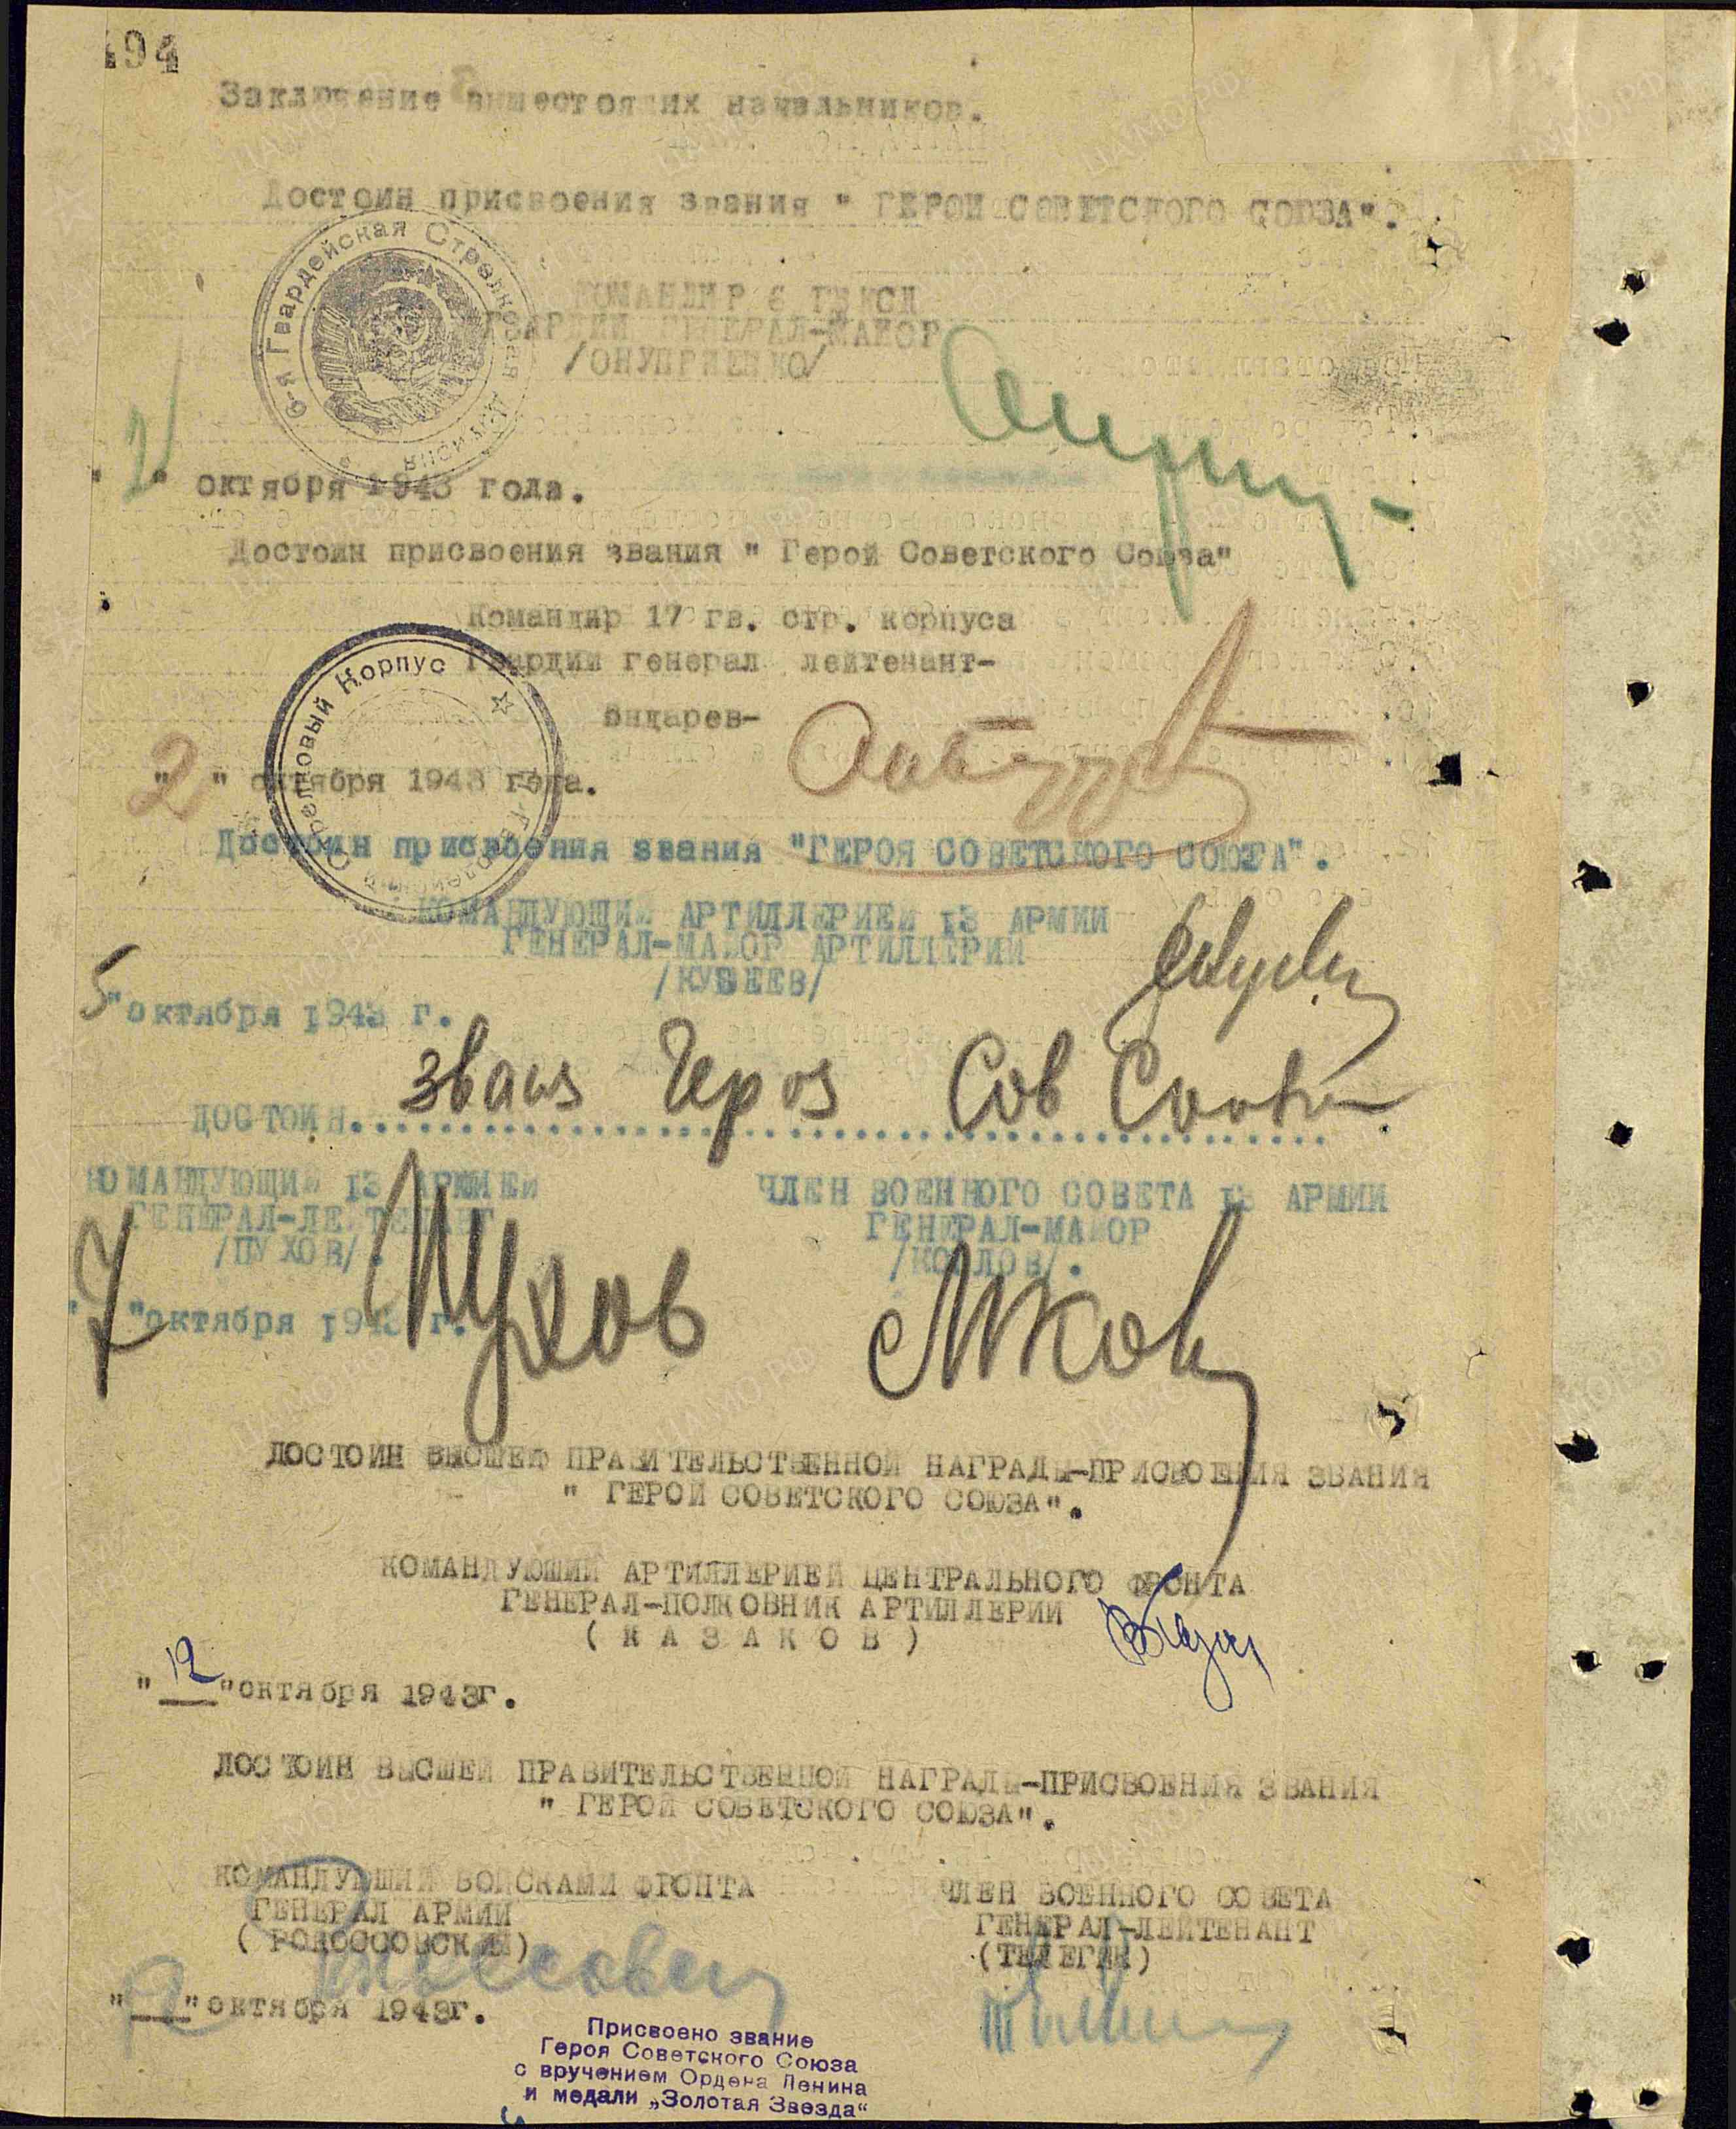 194
Заключение вышестоящих начальников.
Достоин присвоения звания " ГЕРОЙ СОВЕТСКОГО СОЮЗА".
КОМАНДИР 6 ГВ КСД
ГВАРДИИ ГЕНЕРАЛ-МАЙОР
/ОНУПРИЕНКО/
6-я Гвардейская Стрелковая Дивизия
"2" октября 1943 года.
Достоин присвоения звания " Герой Советского Союза"
Командир 17 гв. стр. корпуса
Гвардии генерал лейтенант-
Бондарев-
Стрелковый Корпус
"2" октября 1943 года.
Достоин присвоения звания "ГЕРОЯ СОВЕТСКОГО СОЮЗА".
КОМАНДУЮЩИЙ АРТИЛЛЕРИЕЙ 13 АРМИИ
ГЕНЕРАЛ-МАЙОР АРТИЛЛЕРИИ
/КУБЕЕВ/
5"октября 1943 г.
ДОСТОИН звания Героя Сов Союза
КОМАНДУЮЩИЙ 13 АРМИЕЙ
ГЕНЕРАЛ-ЛЕЙТЕНАНТ
/ПУХОВ/.
Пухов
"7"октября 1943 г.
ЧЛЕН ВОЕННОГО СОВЕТА 13 АРМИИ
ГЕНЕРАЛ-МАЙОР
/КОЗЛОВ/.
ДОСТОИН ВЫСШЕЙ ПРАВИТЕЛЬСТВЕННОЙ НАГРАДЫ-ПРИСВОЕНИЯ ЗВАНИЯ
" ГЕРОЙ СОВЕТСКОГО СОЮЗА".
КОМАНДУЮЩИЙ АРТИЛЛЕРИЕЙ ЦЕНТРАЛЬНОГО ФРОНТА
ГЕНЕРАЛ-ПОЛКОВНИК АРТИЛЛЕРИИ
( К А З А К О В )
"12"октября 1943г.
ДОСТОИН ВЫСШЕЙ ПРАВИТЕЛЬСТВЕННОЙ НАГРАДЫ-ПРИСВОЕНИЯ ЗВАНИЯ
" ГЕРОЙ СОВЕТСКОГО СОЮЗА".
КОМАНДУЮЩИЙ ВОЙСКАМИ ФРОНТА
ГЕНЕРАЛ АРМИИ
( РОКОССОВСКИЙ)
ЧЛЕН ВОЕННОГО СОВЕТА
ГЕНЕРАЛ-ЛЕЙТЕНАНТ
(ТЕЛЕГИН)
"12"октября 1943г.
Присвоено звание
Героя Советского Союза
с вручением Ордена Ленина
и медали „Золотая Звезда“